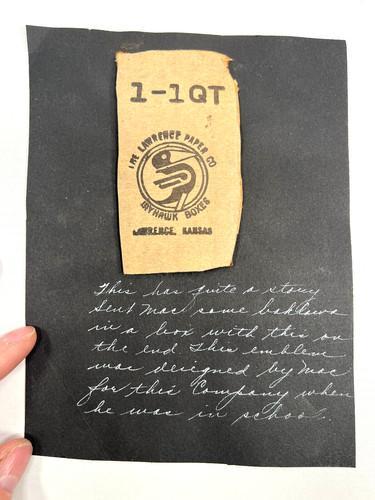 1-1QT
THE LAWRENCE PAPER CO
JAYHAWK BOXES
LAWRENCE, KANSAS
This has quite a story
Sent Mac some baklava
in a box with this on
the end This emblem
was designed by Mac
for this Company when
he was in school.